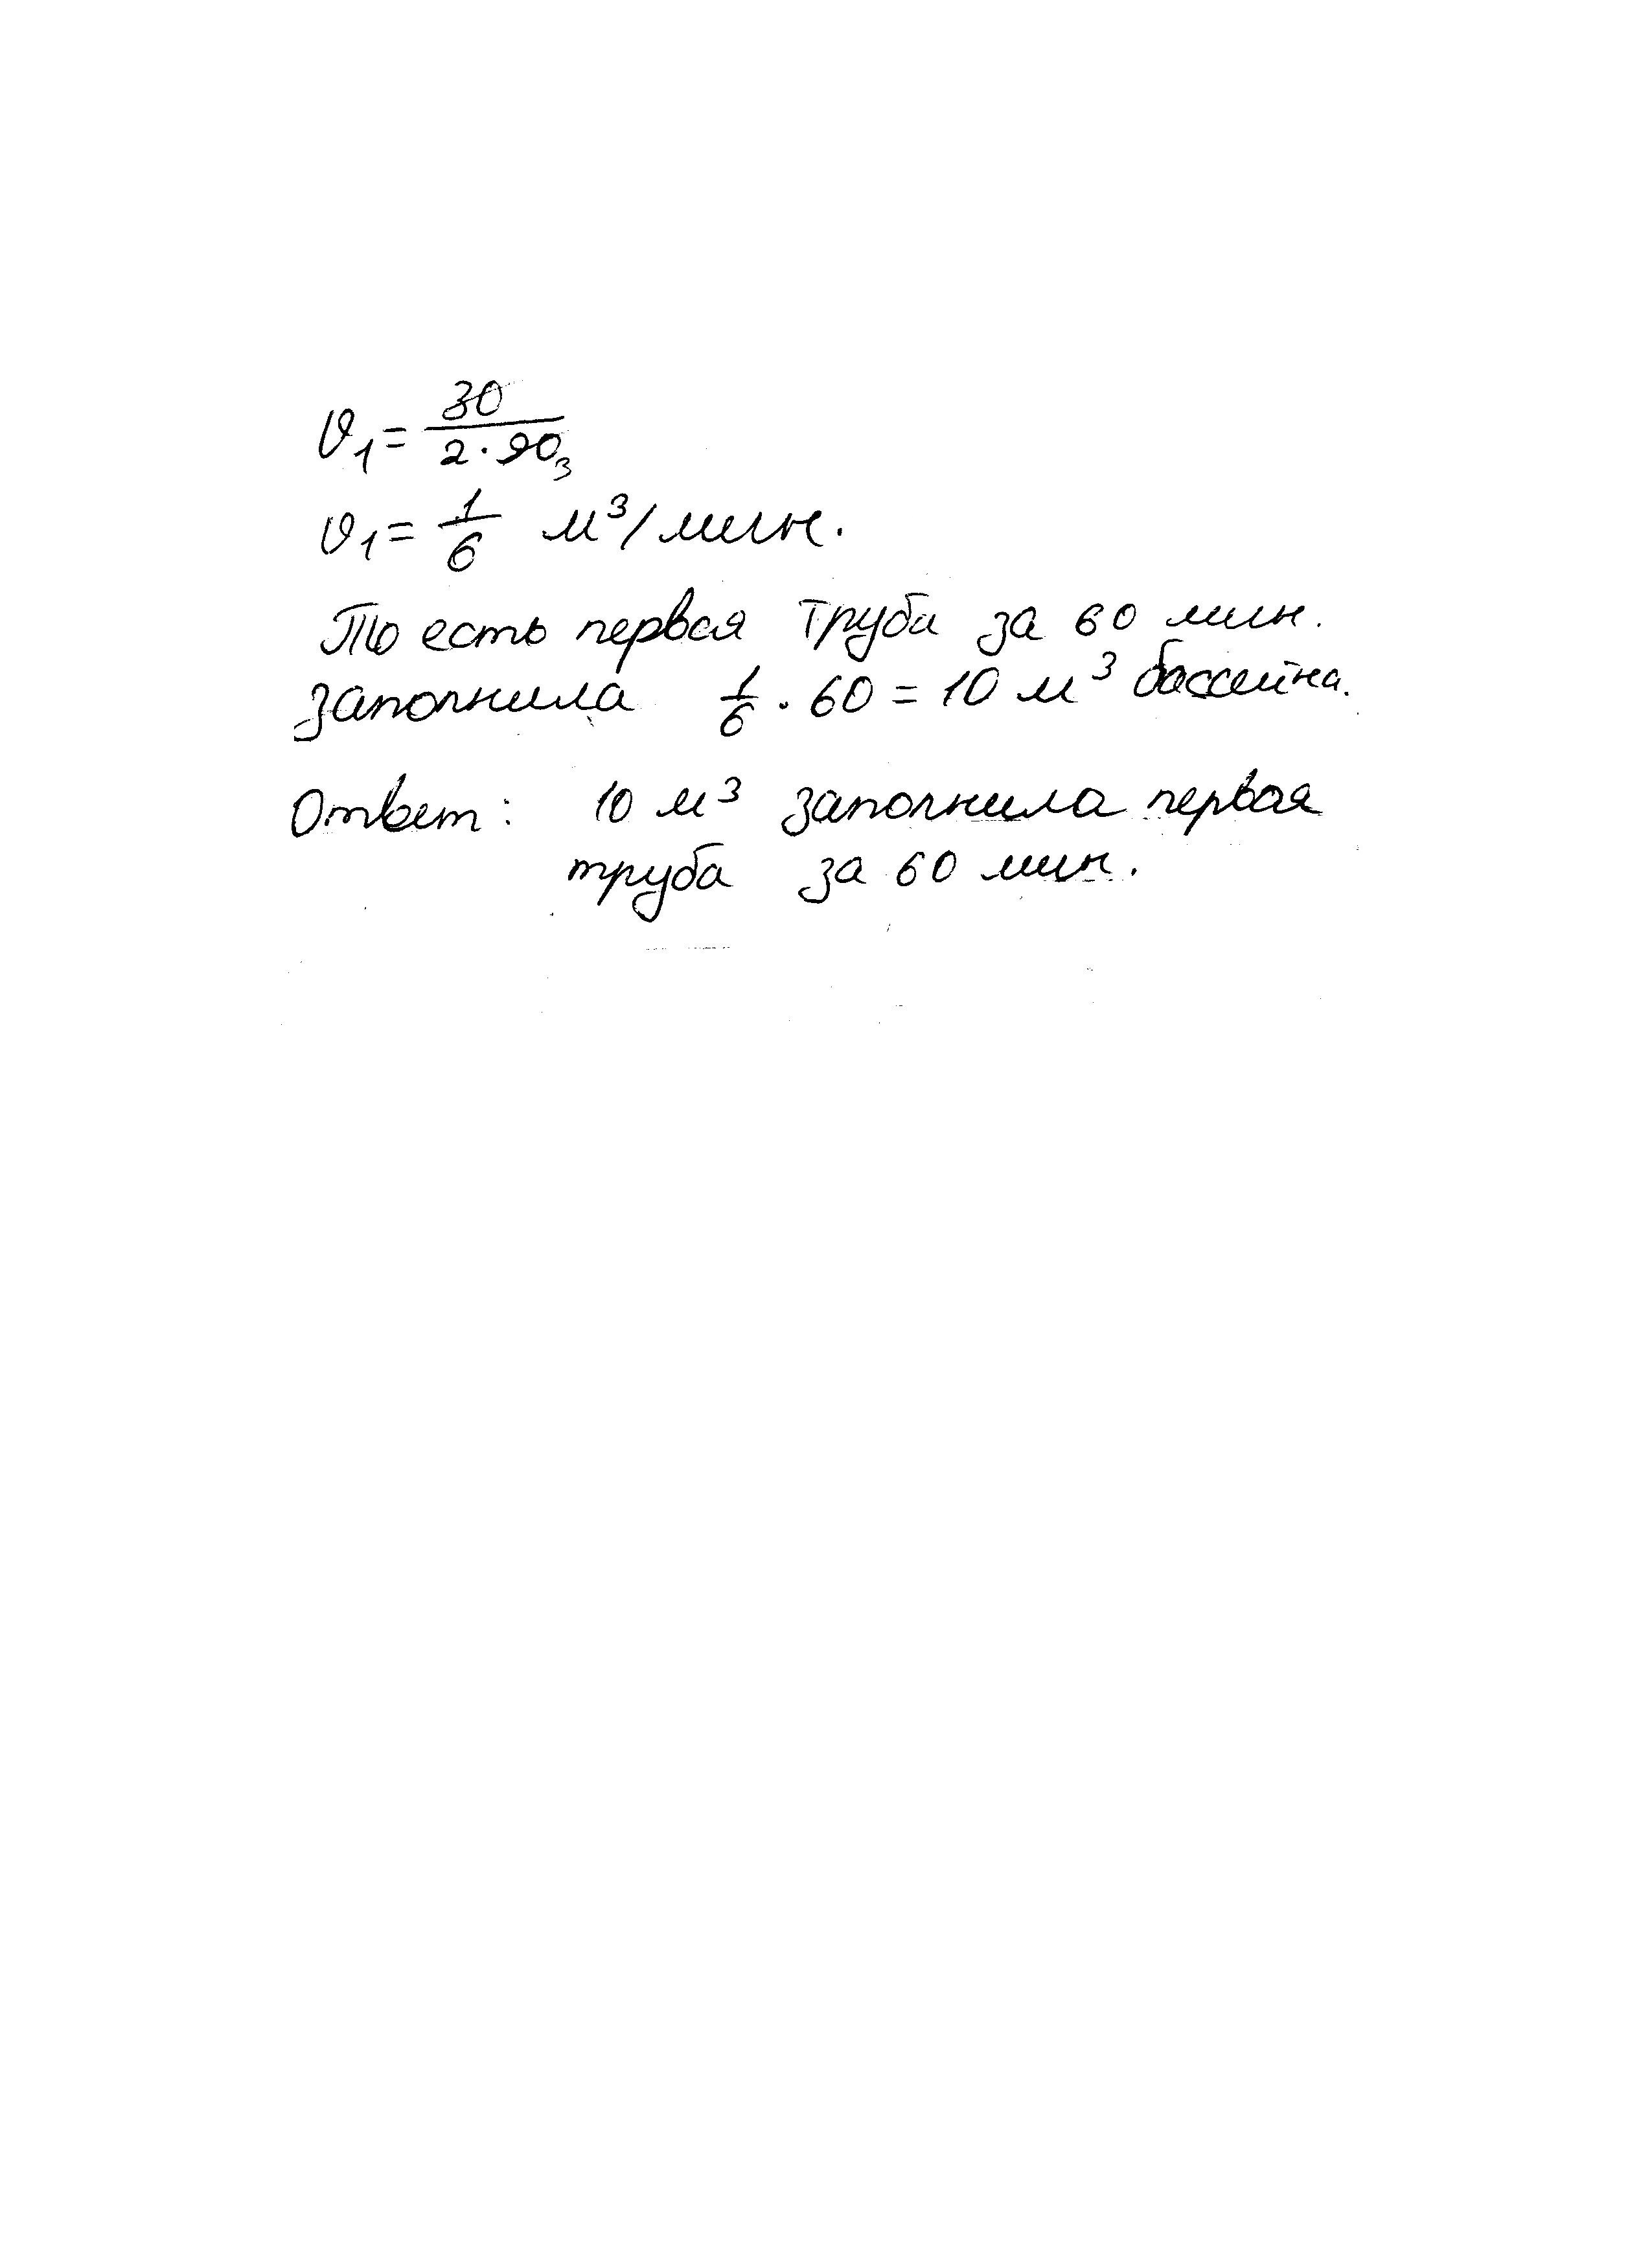 υ₁ = 30 / 2·90₃
υ₁ = 1/6 м³/мин.
То есть первая труба за 60 мин.
заполнила 1/6 · 60 = 10 м³ бассейна.
Ответ: 10 м³ заполнила первая
труба за 60 мин.